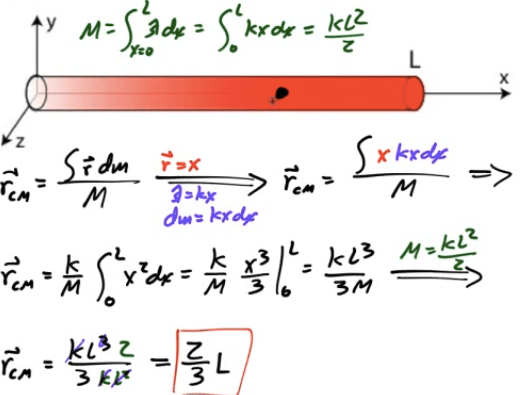 y
M = ∫ₓ₌₀ᴸ λdx = ∫₀ᴸ kxdx = kL²/2
L
x
z
r⃗_CM = ∫ r⃗ dm / M  r⃗ = x ⟹ λ = kx dm = kxdx  r⃗_CM = ∫ x kxdx / M ⟹
r⃗_CM = k/M ∫₀ᴸ x²dx = k/M x³/3 |₀ᴸ = kL³/3M  M = kL²/2 ⟹
r⃗_CM = kL³ 2 / 3 kL² = 2/3 L